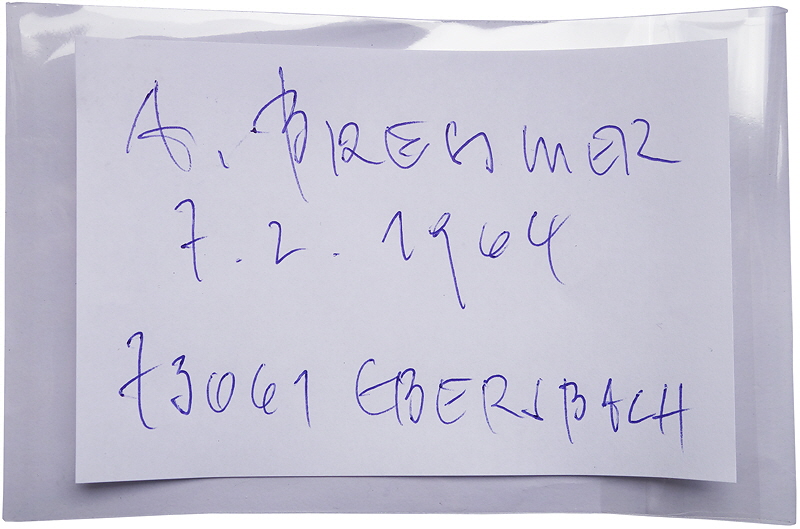 A. BREMMER
7.2.1964
73061 EBERSBACH